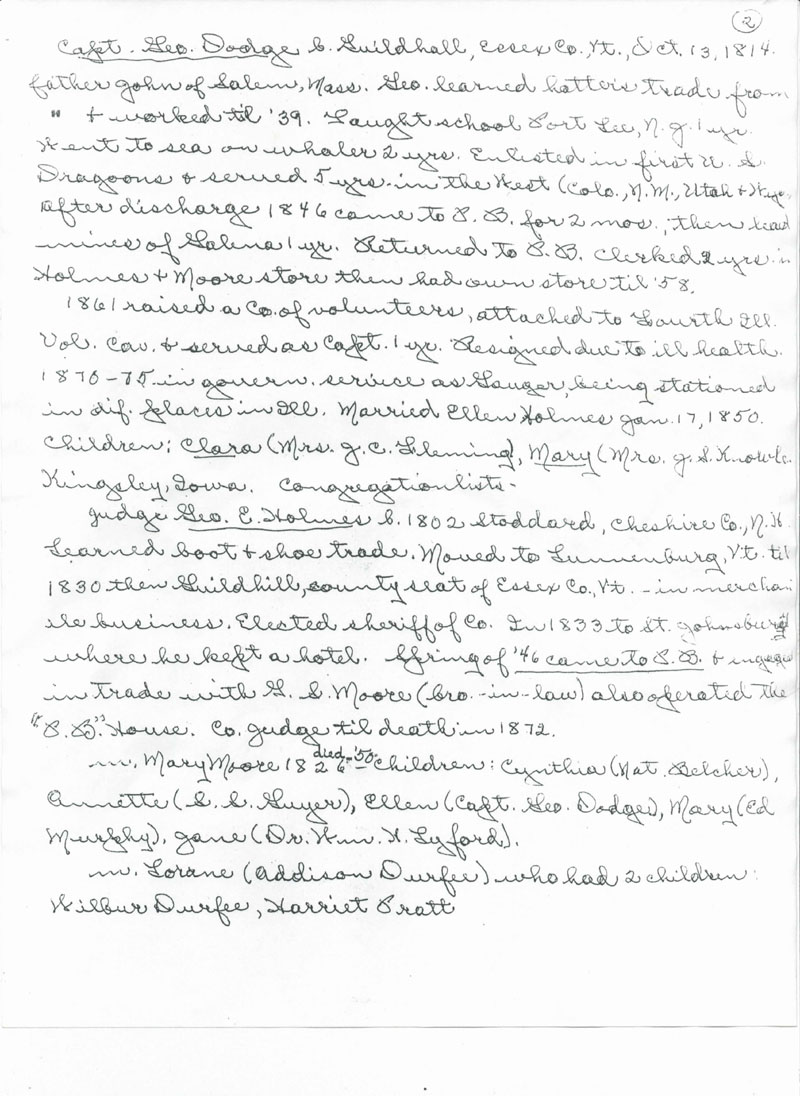 2
Capt. Geo. Dodge b. Guildhall, Essex Co., Vt., Oct. 13, 1814.
father John of Salem, Mass. Geo. learned hatters trade from
" & worked til '39. Taught school Fort Lee, N.J. 1 yr.
Went to sea on whaler 2 yrs. Enlisted in first U.S.
Dragoons & served 5 yrs. in the West (Colo., N.M., Utah &
after discharge 1846 came to P.B. for 2 mos., then lead
mines of Galena 1 yr. Returned to P.B. clerked 2 yrs. in
Holmes & Moore store then had own store til '58.
1861 raised a Co. of volunteers, attached to Fourth Ill.
Vol. Cav. & served as Capt. 1 yr. Resigned due to ill health.
1870-75 in govern. service as Gauger, being stationed
in dif. places in Ill. Married Ellen Holmes Jan. 17, 1850.
Children: Clara (Mrs. J.C. Fleming), Mary (Mrs. J.S. Knowle
Kingsley, Iowa. Congregationlists-
Judge Geo. E. Holmes b. 1802 Stoddard, Cheshire Co., N.H.
Learned boot & shoe trade. Moved to Lunnenburg, Vt. til
1830 then Guildhill, county seat of Essex Co., Vt. - in merchan
ile business. Elected sheriff of Co. In 1833 to St. Johnsbury
where he kept a hotel. Spring of '46 came to P.B. & engage
in trade with G.S. Moore (bro.-in-law) also operated the
"P.B." House. Co. Judge til death in 1872.
m. Mary Moore 1826 died-'50- Children: Cynthia (Nat. Belcher),
Annette (S.S. Guyer), Ellen (Capt. Geo. Dodge), Mary (Ed
Murphy). Jane (Dr. Wm. H. Lyford).
m. Lorane (Addison Durfee) who had 2 children:
Wilbur Durfee, Harriet Pratt